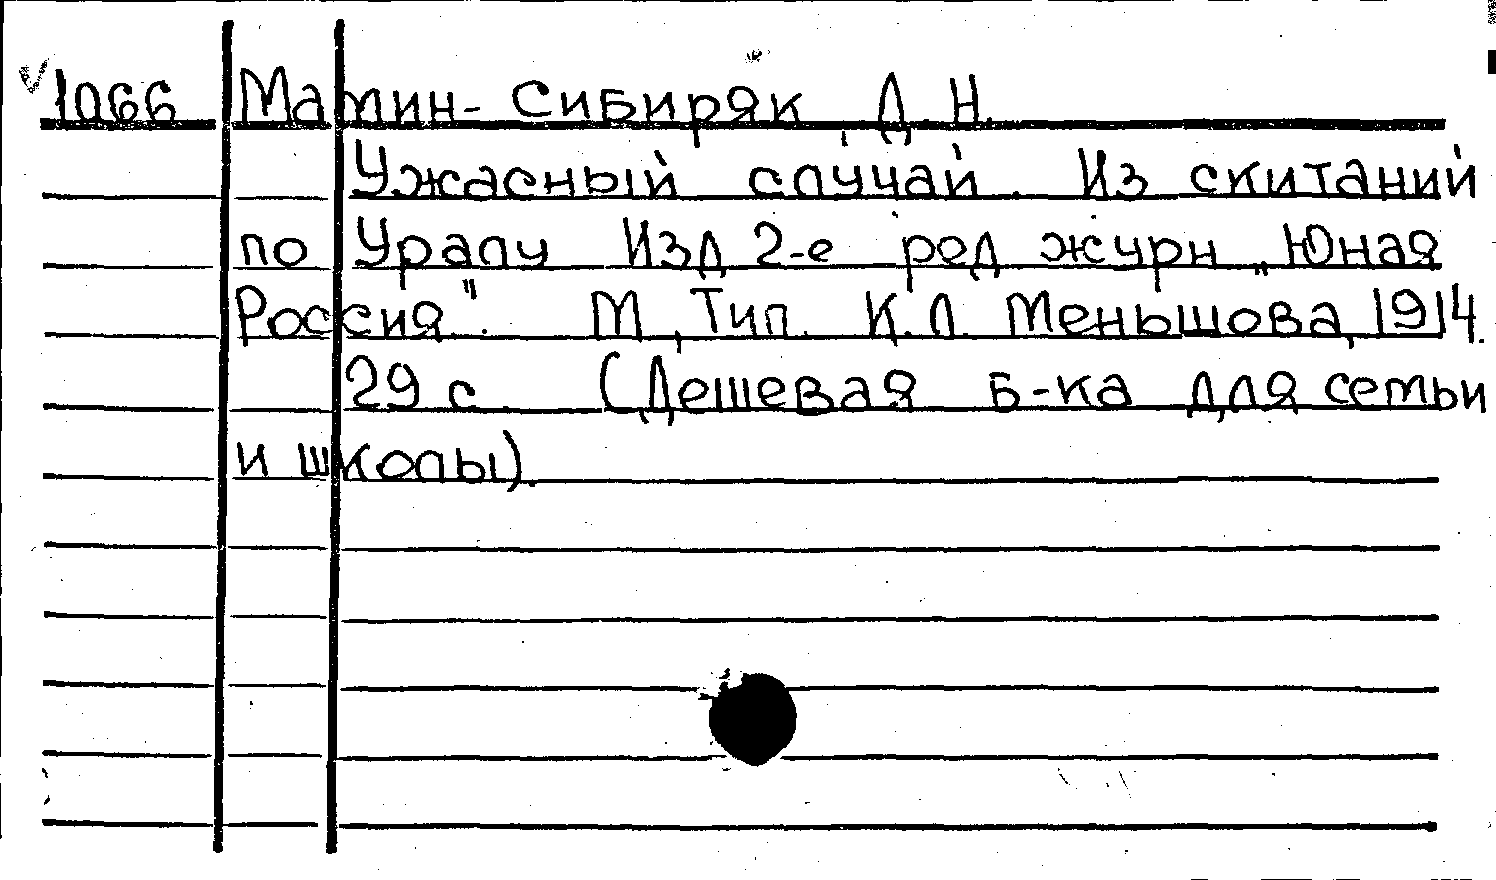 1066 Мамин-Сибиряк, Д. Н.
Ужасный случай. Из скитаний
по Уралу Изд 2-е ред журн „Юная
Россия". М, Тип. К.Л. Меньшова, 1914.
29 с. (Дешевая б-ка для семьи
и школы).